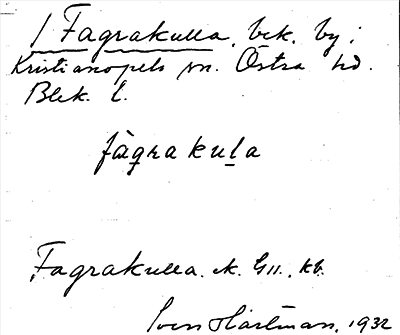 / Fagrakulla, bek. by i
Kristianopels sn. Östra hd.
Blek. l.
fàgrakuḷa
Fagrakulla. ek. G11. kb.
Sven Hartman, 1932